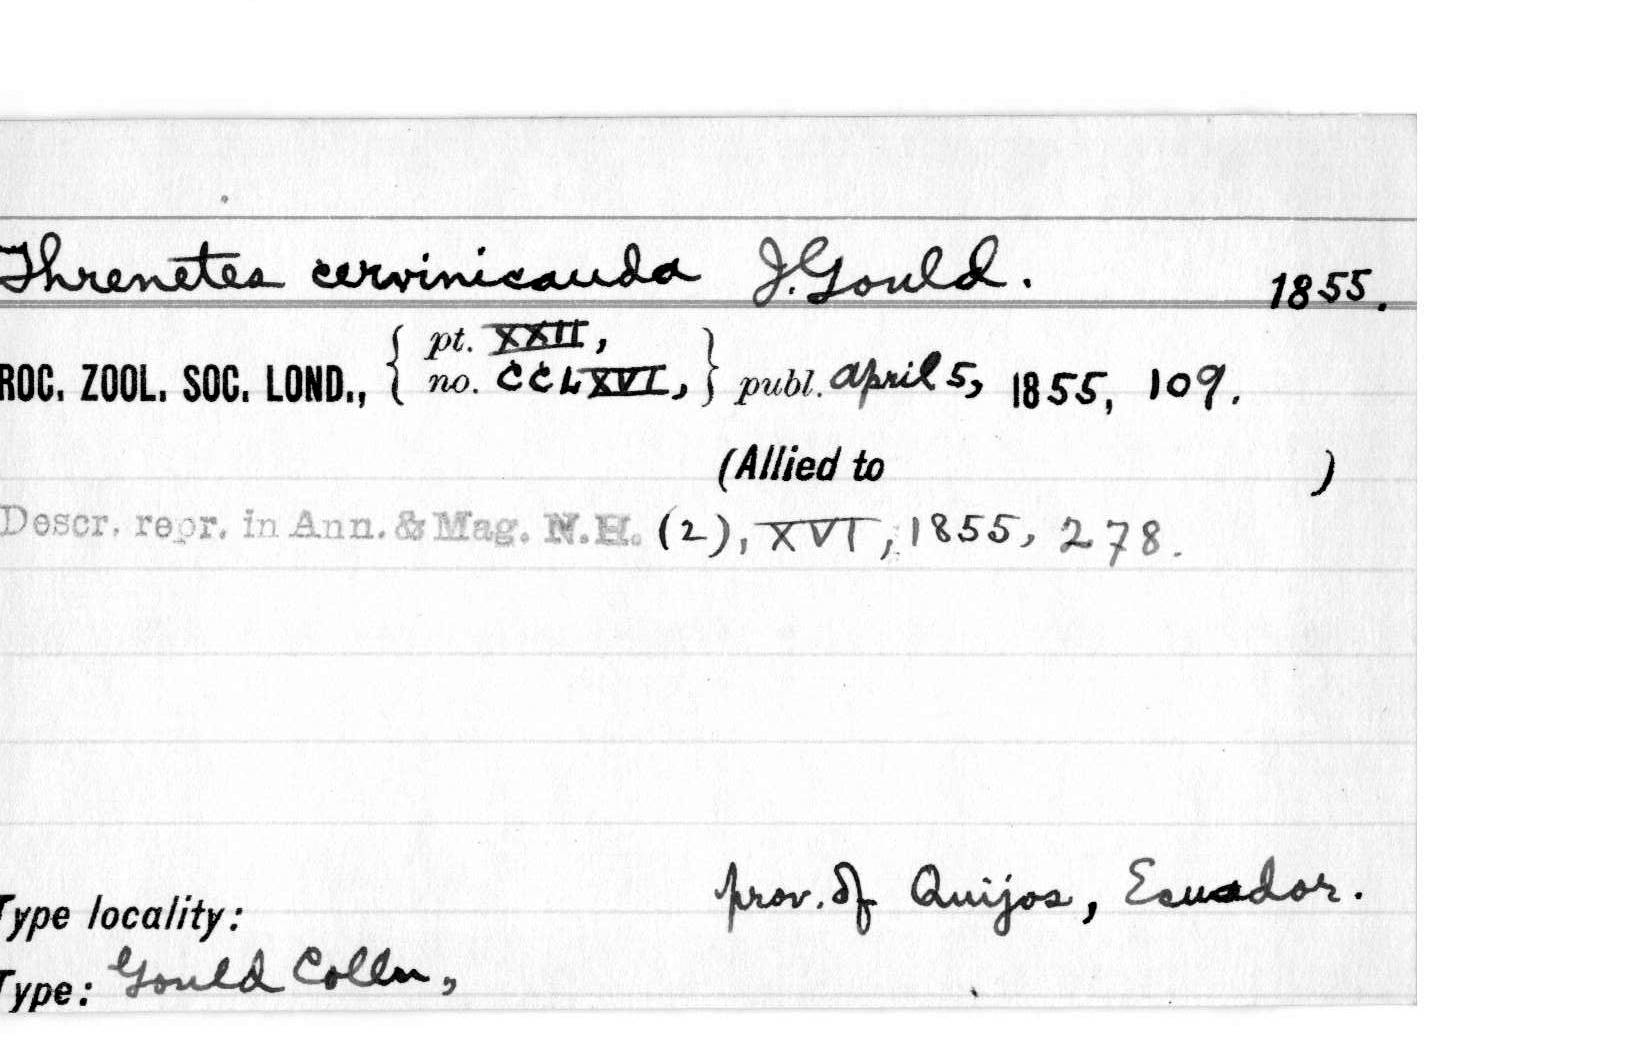 Threnetes cervinicauda J. Gould. 1855.
ROC. ZOOL. SOC. LOND., { pt. XXII, no. CCLXVI, } publ. April 5, 1855, 109.
(Allied to )
Descr. repr. in Ann. & Mag. N.H. (2), XVI, 1855, 278.
Type locality: prov. of Quijos, Ecuador.
Type: Gould Colln,